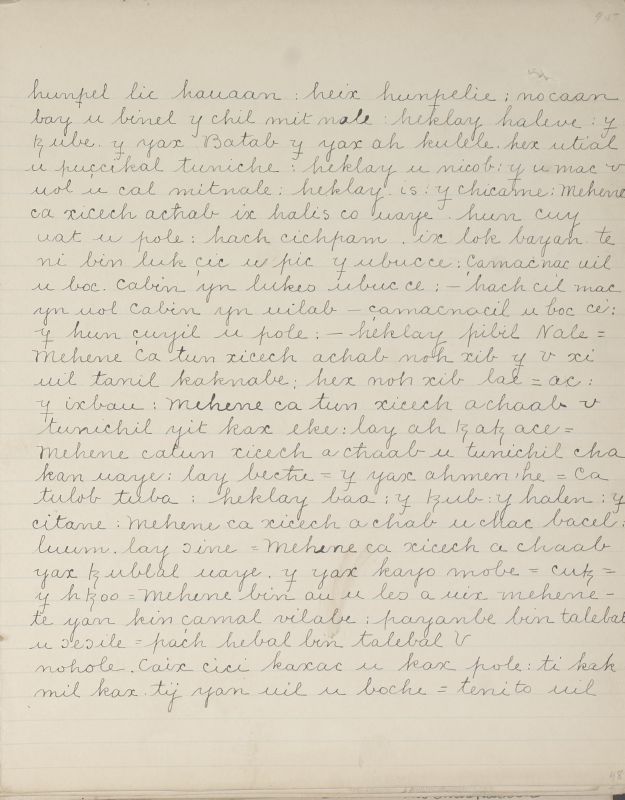 hunpel lic hauaan : heix hunpelie ; nocaan
bay u binel y chil mit nale : heklay haleue : y
ꜩube . y yax Batab y yax ah kulele . hex utial
u puççikal tuniche : heklay u nicob : y u mac v
uol u cal mitnale : heklay . is : y chicame : Mehene
ca xicech achab ix halis co uaye . hun cuy
uat u pole : hach cichpam . ix lok bayan . te
ni bin luk çic u pic y ubucce ; çamacnac uil
u boc . Cabin yn lukes ubuc ce ; — hach cil mac
yn uol Cabin yn uilab — çamacnacil u boc ce :
y hun çuyil u pole ; — heklay pibil Nale =
Mehene Ca tun xicech achab noh xib y v xi
uil tanil kaknabe ; hex noh xib lae = ac :
y ixbau : Mehene ca tun xicech achaab v
tunichil yit kax eke : lay ah ꜩaꜩ ace =
Mehene catun xicech a chaab u tunichil cha
kan uaye : lay beche = y yax ahmen , he = Ca
tulob tuba : heklay baa ; y ꜩub : y halen ; y
citane : Mehene ca xicech a chab u chac bacel :
luum . lay ɔine = Mehene ca xicech a chaab
yax ꜩublal uaye . y yax kayo mobe = cuꜩ =
y hꜩoo = Mehene bin au u les a uix mehene -
te yan hin çamal vilabe ; payanbe bin talebal
u ɔeɔile = pach hebal bin talebal V
nohole . Caix cici kaxac u kax pole : ti kak
mil kax . tij yan uil u boche = tenito uil